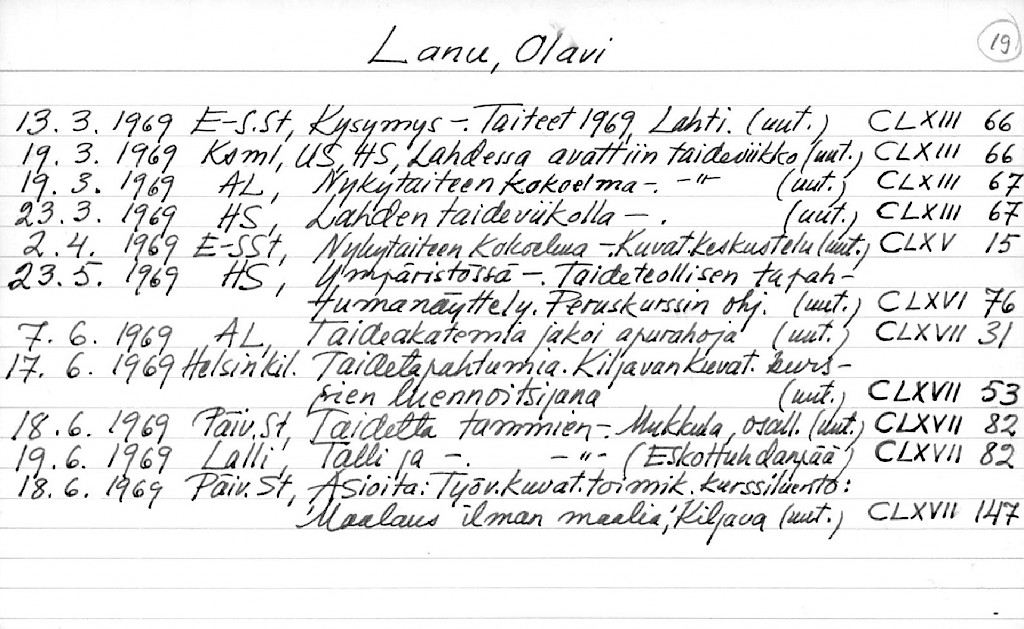 Lanu, Olavi
19
13. 3. 1969 E-S.St, Kysymys -. Taiteet 1969, Lahti. (uut.) CLXIII 66
19. 3. 1969 Ksml, US, HS, Lahdessa avattiin taideviikko (uut.) CLXIII 66
19. 3. 1969 AL, Nykytaiteen kokoelma -. -"- (uut.) CLXIII 67
23. 3. 1969 HS, Lahden taideviikolla -. (uut.) CLXIII 67
2. 4. 1969 E-SSt, Nykytaiteen kokoelma -. Kuvat.keskustelu (uut.) CLXV 15
23. 5. 1969 HS, Ympäristössä -. Taideteollisen tapah-
tumanäyttely. Peruskurssin ohj. (uut.) CLXVI 76
7. 6. 1969 AL, Taideakatemia jakoi apurahoja (uut.) CLXVII 31
17. 6. 1969 Helsinkil. Taidetapahtumia. Kiljavan kuvat. kurs-
sien luennoitsijana (uut.) CLXVII 53
18. 6. 1969 Päiv.St, Taidetta tammien -. Mukkula, osall. (uut.) CLXVII 82
19. 6. 1969 Lalli, Talli ja -. -"- ( ) CLXVII 82
18. 6. 1969 Päiv.St, Asioita: Työv.kuvat.toimik. kurssiluento:
"Maalaus ilman maalia", Kiljava (uut.) CLXVII 147